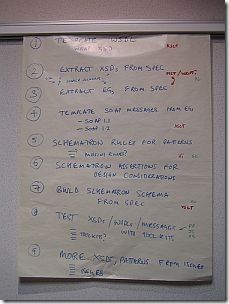 ① TEMPLATE WSDL
WRAP XSD? XSLT
② EXTRACT XSDs FROM SPEC
③ EXTRACT EGs FROM SPEC
④ TEMPLATE SOAP MESSAGES FROM EGs
- SOAP 1.1
- SOAP 1.2 XSLT
⑤ SCHEMATRON RULES FOR PATTERNS
⑥ SCHEMATRON ASSERTIONS FOR
DESIGN CONSIDERATIONS
⑦ BUILD SCHEMATRON SCHEMA
FROM SPEC XSLT
⑧ TEST XSDs/WSDLs/MESSAGES
WITH TOOLKITS
TOOLKITS?
⑨ MORE XSDs, PATTERNS FROM ISSUES
ISSUES